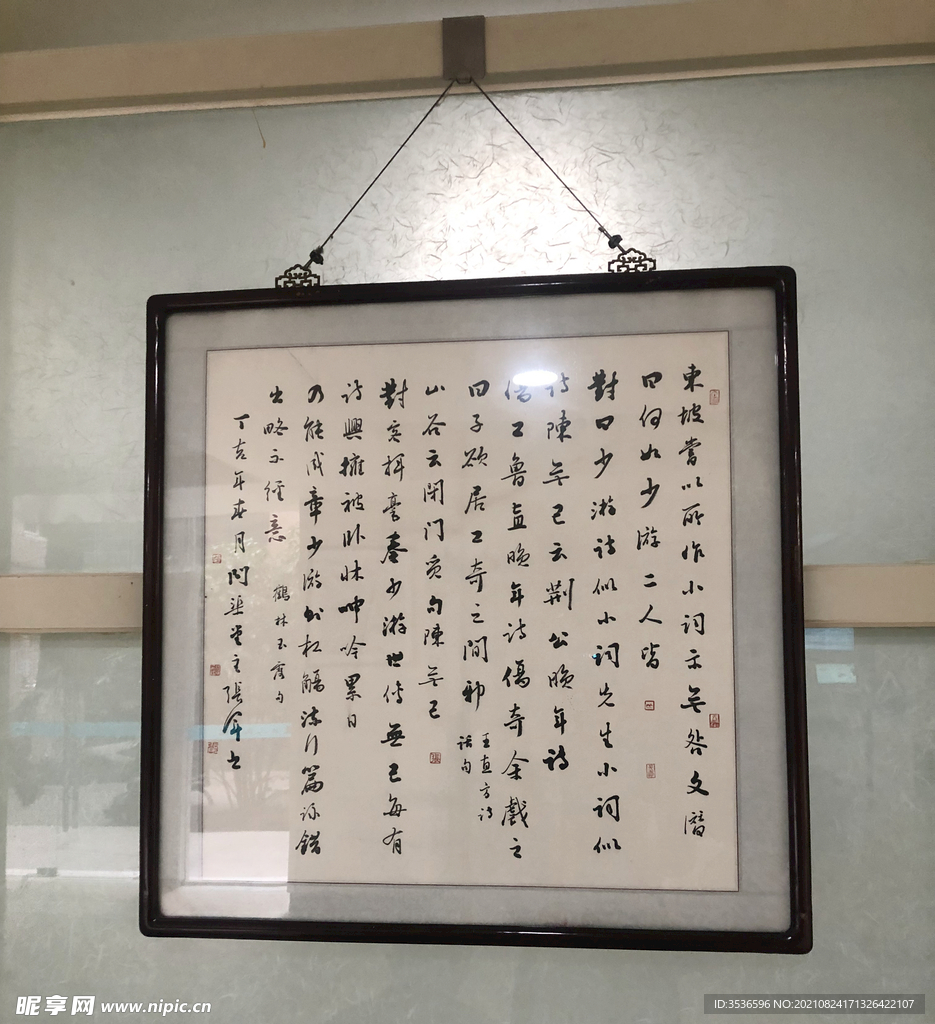 東坡嘗以所作小詞示无咎文潛
曰何如少游二人皆
對曰少游詩似小詞先生小詞似
詩陳无己云荆公晚年詩
傷工魯直晚年詩傷奇余戲之
曰子欲居工奇之間邪
王直方詩
話句
山谷云閉门覓句陳无己
對客揮毫秦少游世传無己每有
詩興擁被卧牀呻吟累日
乃能成章少游則杯觴流行篇詠錯
出略不經意
鶴林玉露句
丁亥年春月問渠堂主張軍书
昵享网 www.nipic.cn
ID:3536596 NO:20210824171326422107